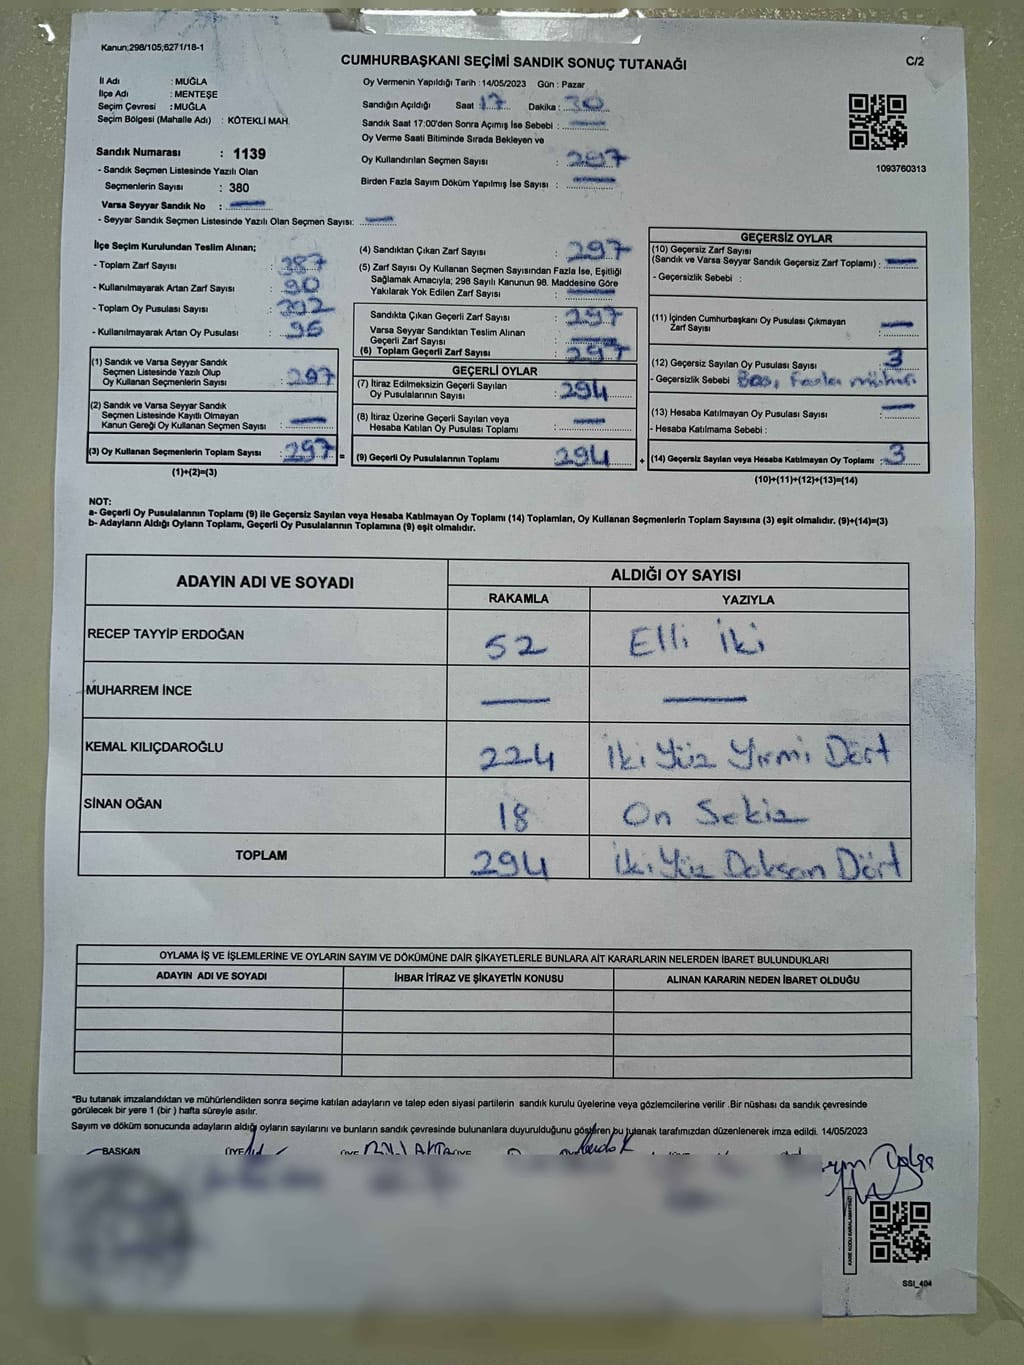 Kanun;298/105;6271/18-1
CUMHURBAŞKANI SEÇİMİ SANDIK SONUÇ TUTANAĞI
C/2
İl Adı : MUĞLA
İlçe Adı : MENTEŞE
Seçim Çevresi : MUĞLA
Seçim Bölgesi (Mahalle Adı) : KÖTEKLİ MAH.
Oy Vermenin Yapıldığı Tarih : 14/05/2023 Gün : Pazar
Sandığın Açıldığı Saat 17 Dakika : 30
Sandık Saat 17:00'den Sonra Açımış İse Sebebi : —
Oy Verme Saati Bitiminde Sırada Bekleyen ve
Oy Kullandırılan Seçmen Sayısı : 297
Birden Fazla Sayım Döküm Yapılmış İse Sayısı : —
1093760313
Sandık Numarası : 1139
- Sandık Seçmen Listesinde Yazılı Olan
Seçmenlerin Sayısı : 380
Varsa Seyyar Sandık No : —
- Seyyar Sandık Seçmen Listesinde Yazılı Olan Seçmen Sayısı: —
İlçe Seçim Kurulundan Teslim Alınan;
- Toplam Zarf Sayısı : 387
- Kullanılmayarak Artan Zarf Sayısı : 90
- Toplam Oy Pusulası Sayısı : 392
- Kullanılmayarak Artan Oy Pusulası : 95
(1) Sandık ve Varsa Seyyar Sandık
Seçmen Listesinde Yazılı Olup
Oy Kullanan Seçmenlerin Sayısı : 297
(2) Sandık ve Varsa Seyyar Sandık
Seçmen Listesinde Kayıtlı Olmayan
Kanun Gereği Oy Kullanan Seçmen Sayısı : —
(3) Oy Kullanan Seçmenlerin Toplam Sayısı : 297 =
(1)+(2)=(3)
(4) Sandıktan Çıkan Zarf Sayısı : 297
(5) Zarf Sayısı Oy Kullanan Seçmen Sayısından Fazla İse, Eşitliği
Sağlamak Amacıyla; 298 Sayılı Kanunun 98. Maddesine Göre
Yakılarak Yok Edilen Zarf Sayısı : —
Sandıkta Çıkan Geçerli Zarf Sayısı : 297
Varsa Seyyar Sandıktan Teslim Alınan
Geçerli Zarf Sayısı : —
(6) Toplam Geçerli Zarf Sayısı : 297
GEÇERLİ OYLAR
(7) İtiraz Edilmeksizin Geçerli Sayılan
Oy Pusulalarının Sayısı : 294
(8) İtiraz Üzerine Geçerli Sayılan veya
Hesaba Katılan Oy Pusulası Toplamı : —
(9) Geçerli Oy Pusulalarının Toplamı : 294 +
GEÇERSİZ OYLAR
(10) Geçersiz Zarf Sayısı
(Sandık ve Varsa Seyyar Sandık Geçersiz Zarf Toplamı) : —
- Geçersizlik Sebebi :
(11) İçinden Cumhurbaşkanı Oy Pusulası Çıkmayan
Zarf Sayısı : —
(12) Geçersiz Sayılan Oy Pusulası Sayısı : 3
- Geçersizlik Sebebi Boş, Fazla mühür
(13) Hesaba Katılmayan Oy Pusulası Sayısı : —
- Hesaba Katılmama Sebebi :
(14) Geçersiz Sayılan veya Hesaba Katılmayan Oy Toplamı : 3
(10)+(11)+(12)+(13)=(14)
NOT:
a- Geçerli Oy Pusulalarının Toplamı (9) ile Geçersiz Sayılan veya Hesaba Katılmayan Oy Toplamı (14) Toplamları, Oy Kullanan Seçmenlerin Toplam Sayısına (3) eşit olmalıdır. (9)+(14)=(3)
b- Adayların Aldığı Oyların Toplamı, Geçerli Oy Pusulalarının Toplamına (9) eşit olmalıdır.
ADAYIN ADI VE SOYADI ALDIĞI OY SAYISI
RAKAMLA YAZIYLA
RECEP TAYYİP ERDOĞAN 52 Elli İki
MUHARREM İNCE — —
KEMAL KILIÇDAROĞLU 224 İki Yüz Yirmi Dört
SİNAN OĞAN 18 On Sekiz
TOPLAM 294 İki Yüz Doksan Dört
OYLAMA İŞ VE İŞLEMLERİNE VE OYLARIN SAYIM VE DÖKÜMÜNE DAİR ŞİKAYETLERLE BUNLARA AİT KARARLARIN NELERDEN İBARET BULUNDUKLARI
ADAYIN ADI VE SOYADI İHBAR İTİRAZ VE ŞİKAYETİN KONUSU ALINAN KARARIN NEDEN İBARET OLDUĞU
*Bu tutanak imzalandıktan ve mühürlendikten sonra seçime katılan adayların ve talep eden siyasi partilerin sandık kurulu üyelerine veya gözlemcilerine verilir .Bir nüshası da sandık çevresinde
görülecek bir yere 1 (bir ) hafta süreyle asılır.
Sayım ve döküm sonucunda adayların aldığı oyların sayılarını ve bunların sandık çevresinde bulunanlara duyurulduğunu gösteren bu tutanak tarafımızdan düzenlenerek imza edildi. 14/05/2023
BAŞKAN ÜYE
SSI_404